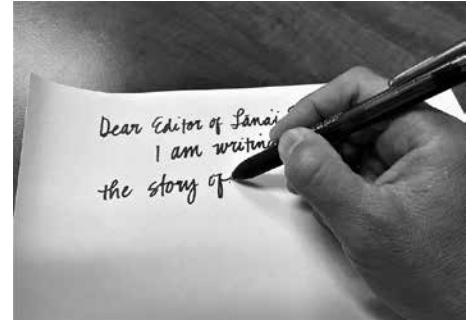 Dear Editor of Lānaʻi
I am writing
the story of